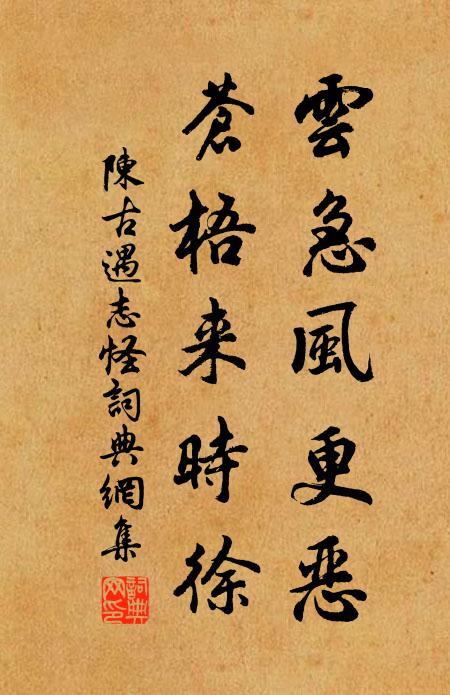 雲急風更惡
蒼梧来時徐
陳古遇志怪詞典網集
詞典
网印